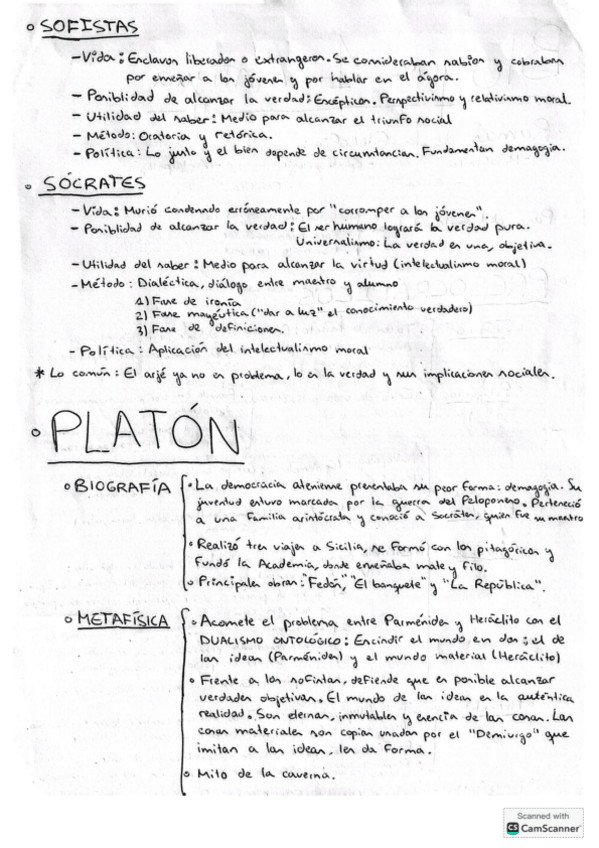 ○ SOFISTAS
- Vida: Esclavos liberados o extrangeros. Se consideraban sabios y cobraban
por enseñar a los jóvenes y por hablar en el ágora.
- Posiblidad de alcanzar la verdad: Escépticos. Perspectivismo y relativismo moral.
- Utilidad del saber: Medio para alcanzar el triunfo social
- Método: Oratoria y retórica.
- Política: Lo justo y el bien depende de circumstancias. Fundamentan demagogia.
○ SÓCRATES
- Vida: Murió condenado erróneamente por "corromper a los jóvenes".
- Posiblidad de alcanzar la verdad: El ser humano logrará la verdad pura.
Universalismo: La verdad es una, objetiva.
- Utilidad del saber: Medio para alcanzar la virtud (intelectualismo moral)
- Método: Dialéctica, diálogo entre maestro y alumno
1) Fase de ironía
2) Fase mayéutica ("dar a luz" el conocimiento verdadero)
3) Fase de definiciones.
- Política: Aplicación del intelectualismo moral
* Lo común: El arjé ya no es problema, lo es la verdad y sus implicaciones sociales.
○ PLATÓN
○ BIOGRAFÍA
• La democracia ateniense presentaba su peor forma: demagogia. Su
juventud estuvo marcada por la guerra del Peloponeso. Perteneció
a una familia aristócrata y conoció a Sócrates, quien fue su mestro
• Realizó tres viajes a Sicilia, se formó con los pitagóricos y
fundó la Academia, donde enseñaba mate y filo.
○ Principales obras: "Fedón", "El banquete" y "La República".
○ METAFÍSICA
• Acomete el problema entre Parménides y Heráclito con el
DUALISMO ONTOLÓGICO: Encindir el mundo en dos: el de
las ideas (Parménides) y el mundo material (Heráclito)
• Frente a los sofistas, defiende que es posible alcanzar
verdades objetivas. El mundo de las ideas es la auténtica
realidad. Son eternas, inmutables y esencia de las cosas. Las
cosas materiales son copias usadas por el "Demiurgo" que
imitan a las ideas, les da forma.
○ Mito de la caverna.
Scanned with
CS CamScanner